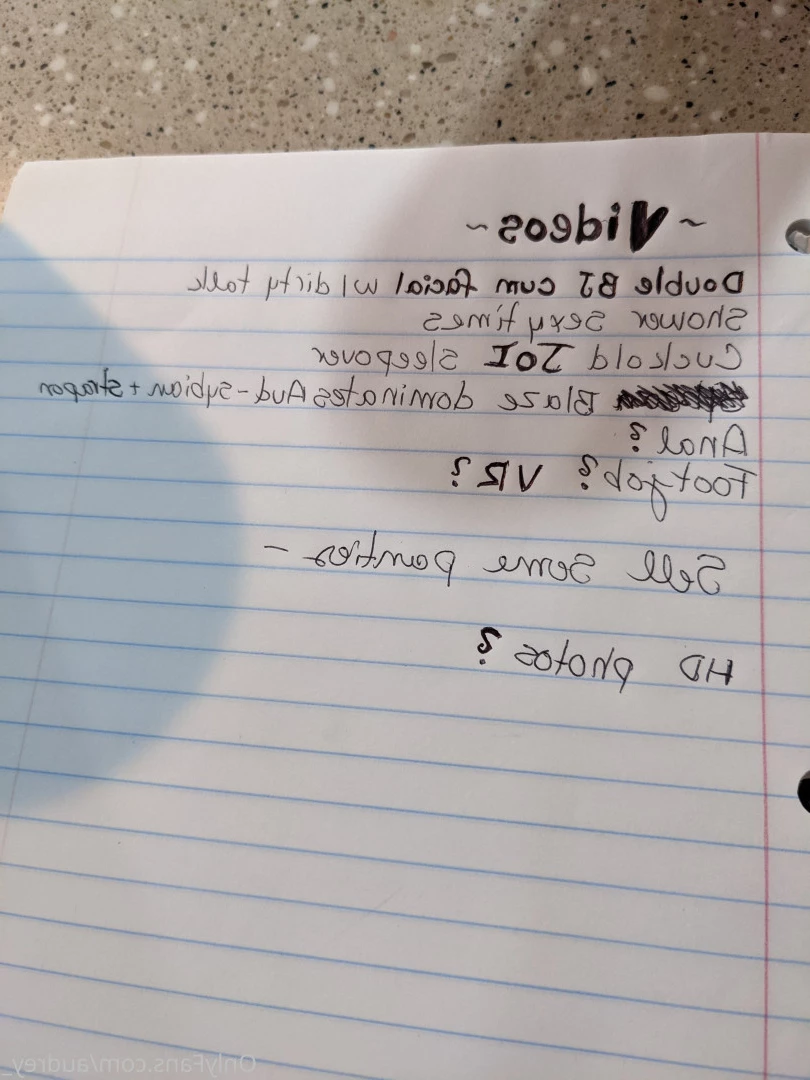 ~Videos~
Double BJ cum facial w/ dirty talk
Shower sexy times
Cuckold JOI sleepover
Blaze dominates Aud-sybian + strapon
Anal?
Footjob? VR?
Sell some panties -
HD photos?
OnlyFans.com/audrey_